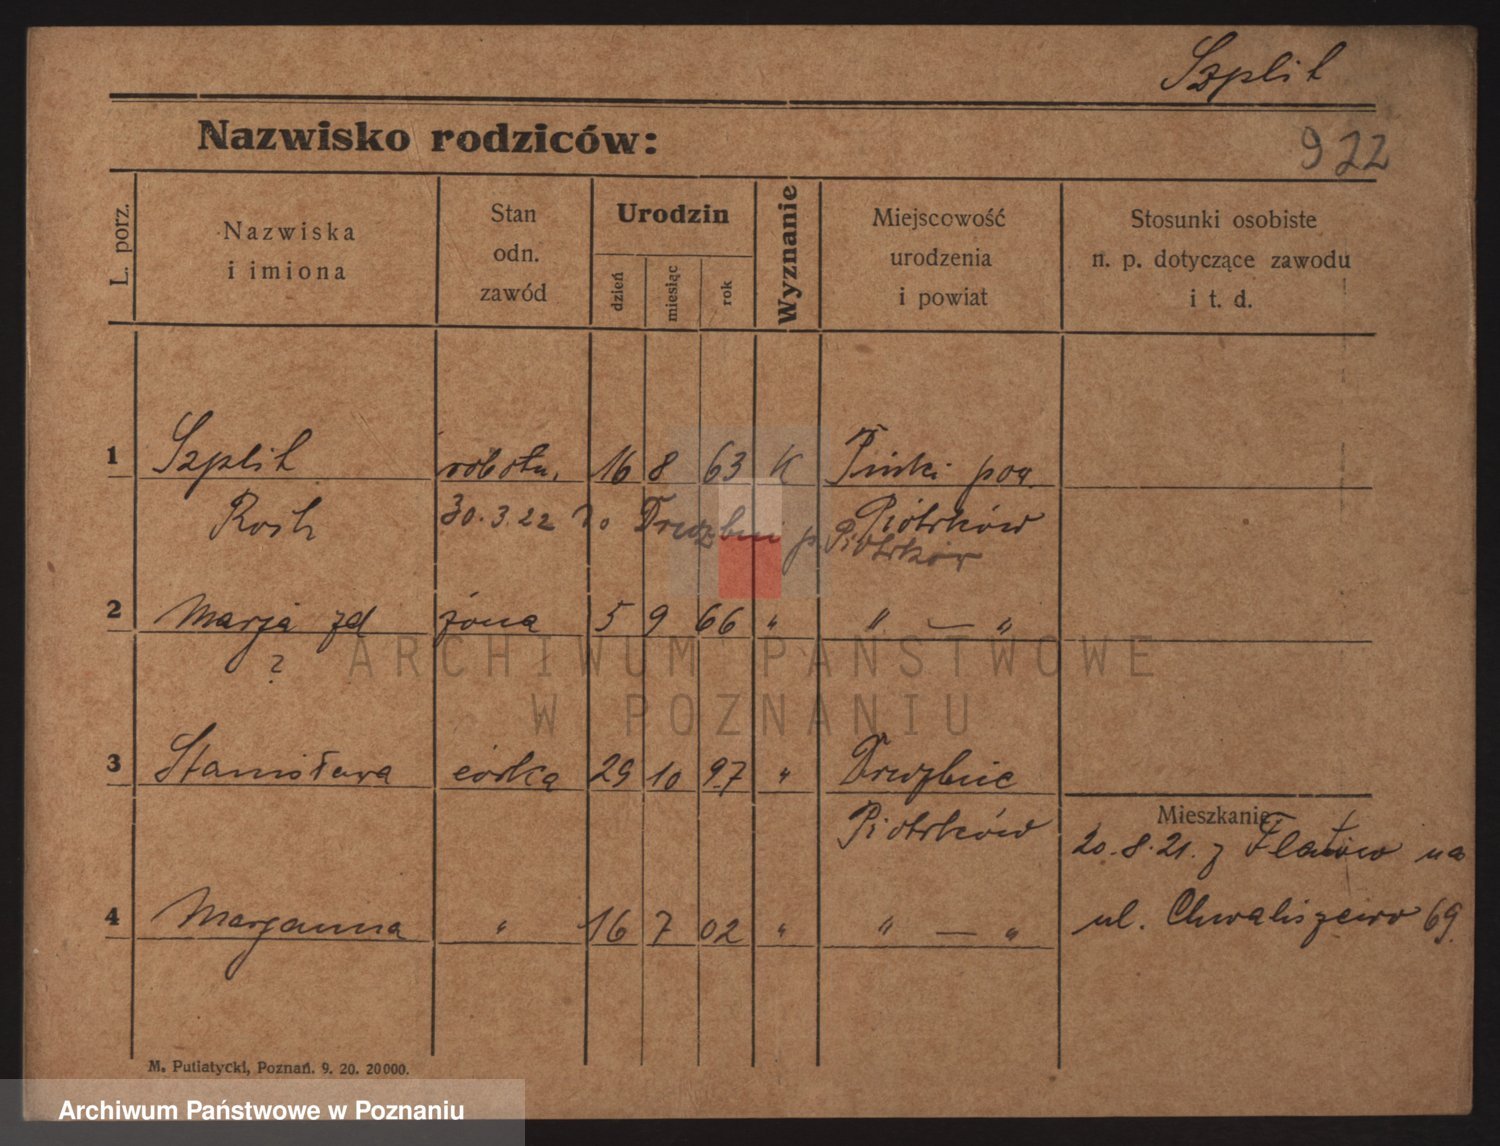 Szplit
Nazwisko rodziców:
922
L. porz.
Nazwiska
i imiona
Stan
odn.
zawód
Urodzin
dzień
miesiąc
rok
Wyznanie
Miejscowość
urodzenia
i powiat
Stosunki osobiste
n. p. dotyczące zawodu
i t. d.
1 Szplit robotn. 16 8 63 K pow.
Roch 30.3.22 do p. Piotrków
Piotrków
2 Marja zd żona 5 9 66 " " — "
?
3 Stanisława córka 29 10 97 "
Piotrków
Mieszkanie
20.8.21. z Flatow na
4 Marjanna " 16 7 02 " " — " ul. Chwaliszewo 69.
M. Putiatycki, Poznań. 9. 20. 20000.
ARCHIWUM PAŃSTWOWE
W POZNANIU
Archiwum Państwowe w Poznaniu